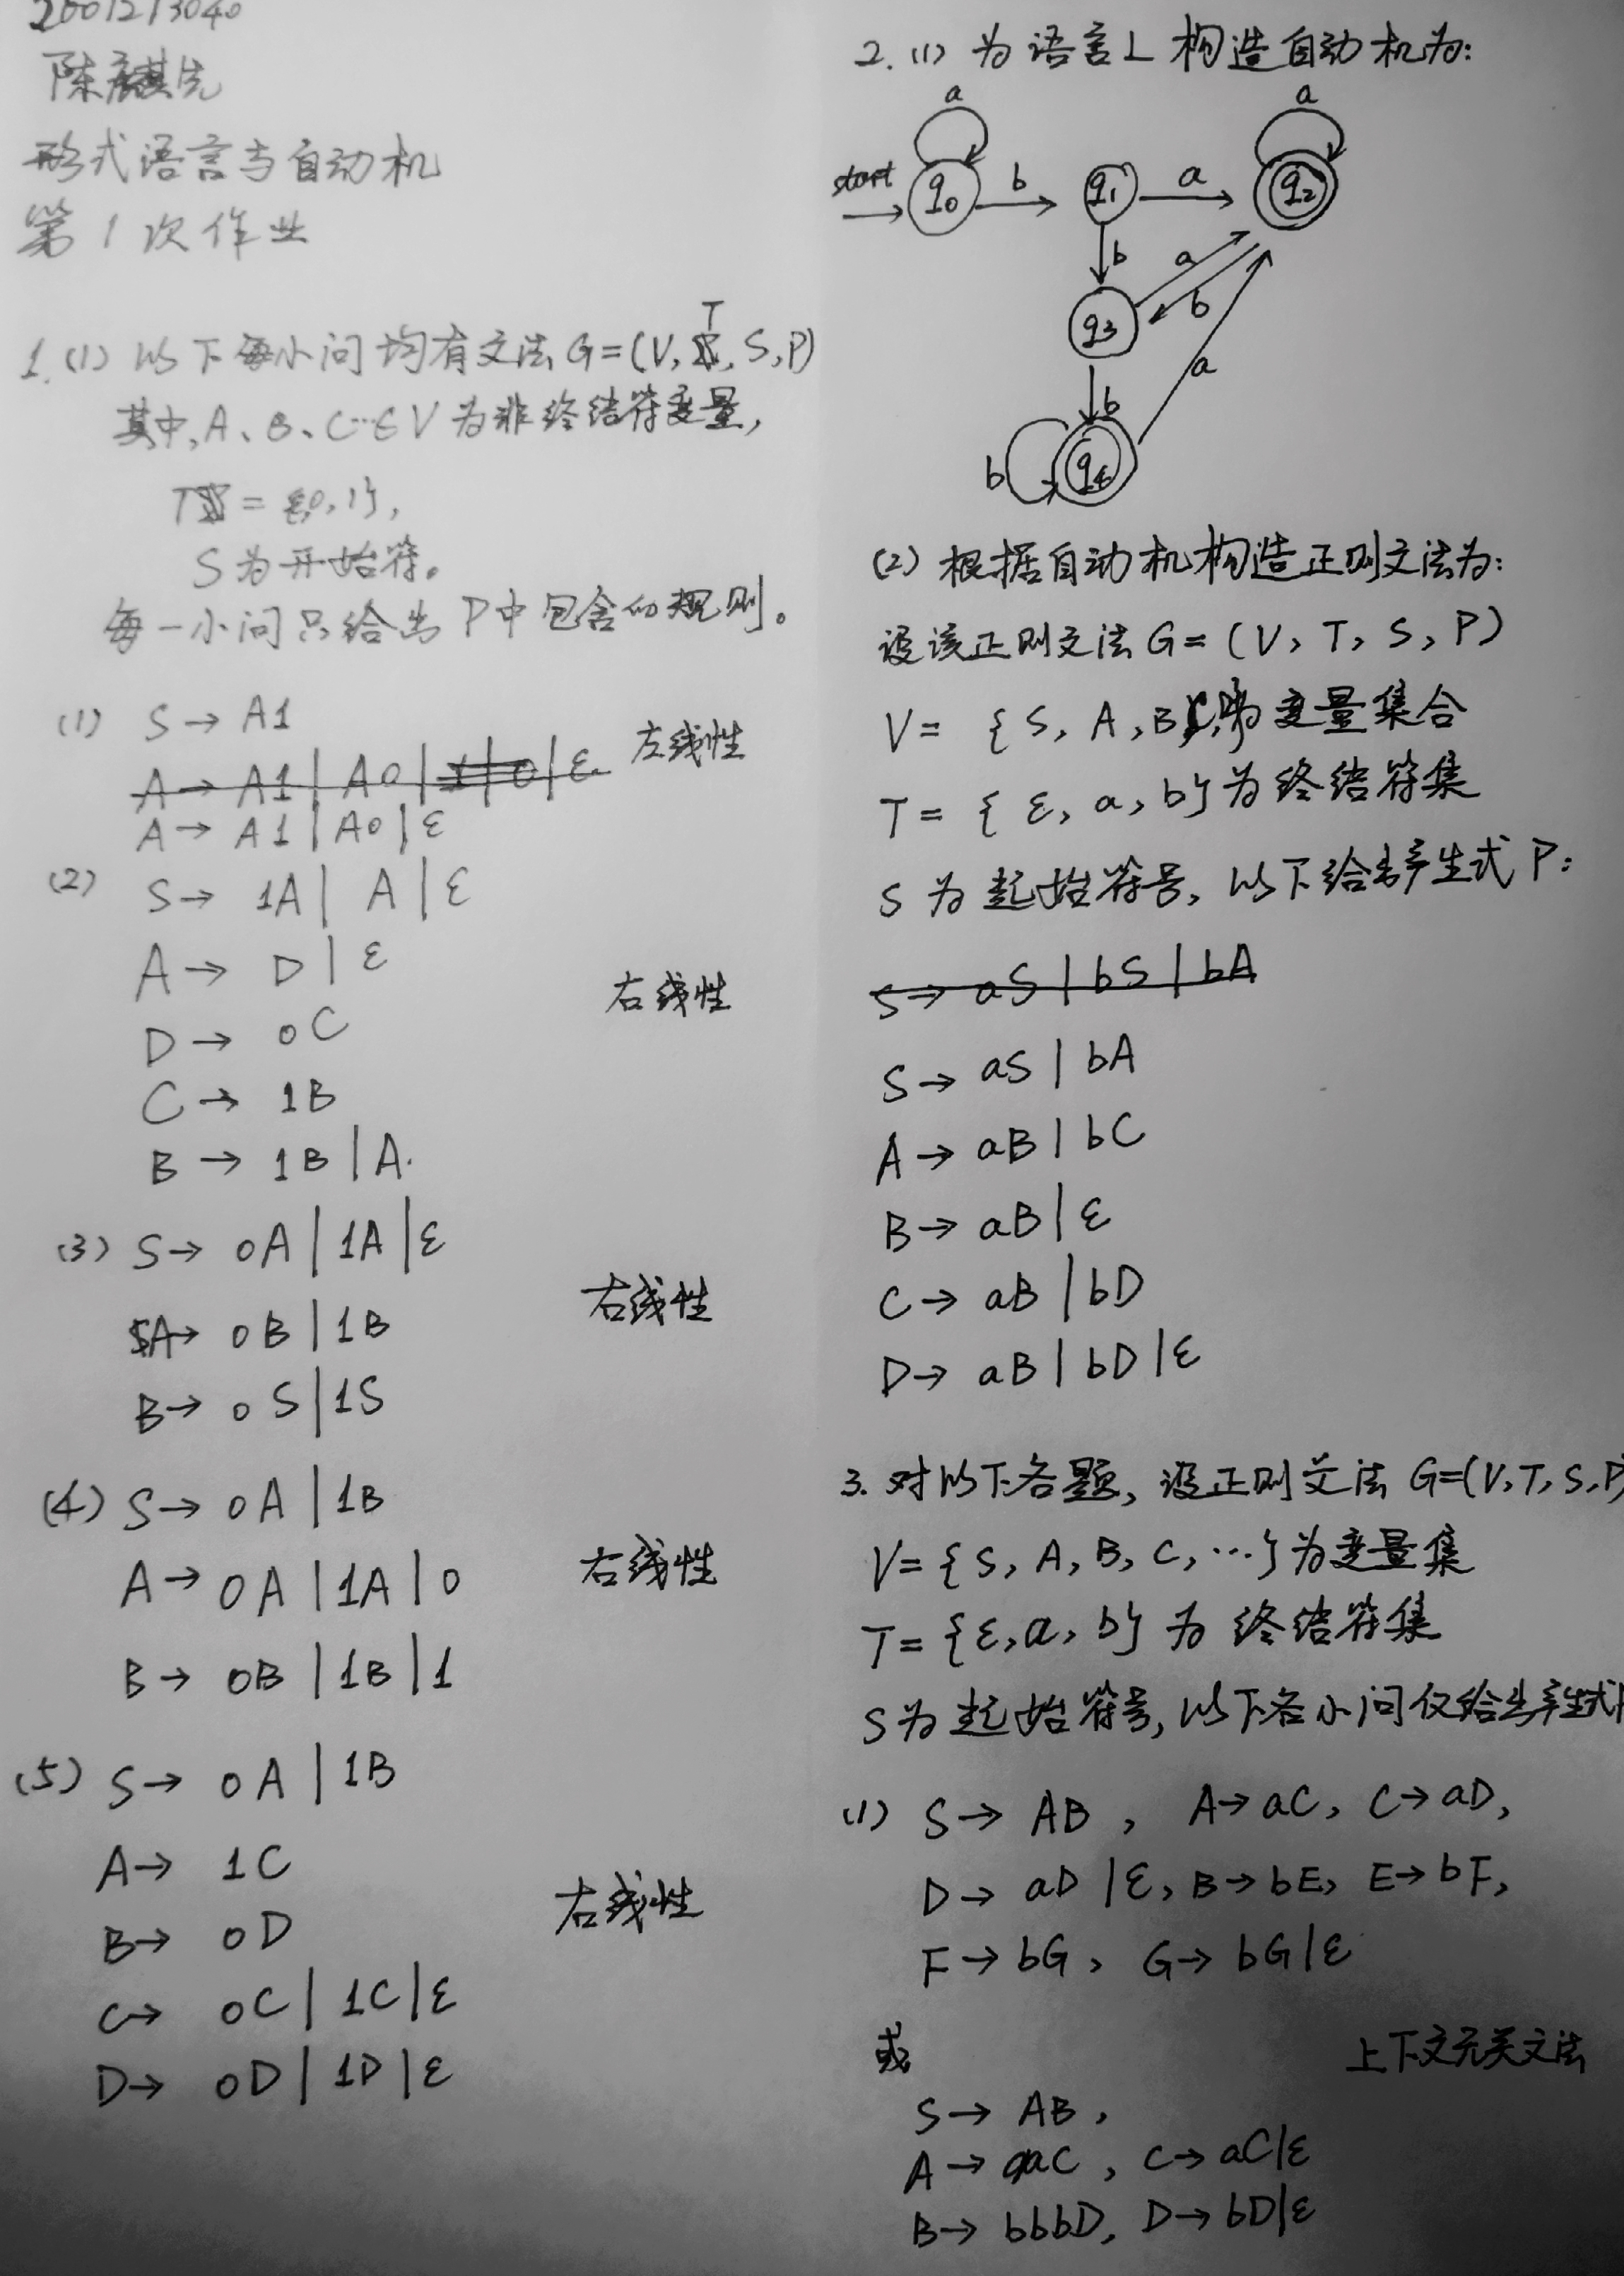 2001213040
陈麒先
形式语言与自动机
第1次作业
1.(1) 以下每小问均有文法G=(V, T, S, P)
其中,A、B、C…∈V为非终结符变量,
T = {0,1},
S为开始符。
每一小问只给出P中包含的规则。
(1) S→ A1
左线性
A→ A1 | A0 | 1 | 0 | ε
A→ A1 | A0 | ε
(2) S→ 1A | A | ε
A→ D | ε
右线性
D→ 0C
C→ 1B
B→ 1B | A.
(3) S→ 0A | 1A | ε
右线性
A→ 0B | 1B
B→ 0S | 1S
(4) S→ 0A | 1B
A→ 0A | 1A | 0
右线性
B→ 0B | 1B | 1
(5) S→ 0A | 1B
A→ 1C
右线性
B→ 0D
C→ 0C | 1C | ε
D→ 0D | 1D | ε
2.(1) 为语言L构造自动机为:
a
a
start
q0
b
q1
a
q2
b
a
b
q3
a
b
b
q4
(2) 根据自动机构造正则文法为:
设该正则文法G=(V, T, S, P)
V= {S, A, B, 为变量集合
T= {ε, a, b}为终结符集
S为起始符号, 以下给出产生式P:
S→ aS | bS | bA
S→ aS | bA
A→ aB | bC
B→ aB | ε
C→ aB | bD
D→ aB | bD | ε
3. 对以下各题, 设正则文法 G=(V, T, S, P)
V={S, A, B, C, …}为变量集
T={ε, a, b}为终结符集
S为起始符号, 以下各小问仅给出产生式
(1) S→ AB, A→aC, C→aD,
D→ aD | ε, B→bE, E→bF,
F→bG, G→ bG | ε
或
上下文无关文法
S→ AB,
A→ aaC, C→ aC|ε
B→ bbbD, D→ bD|ε